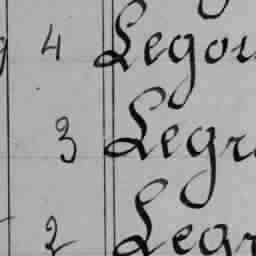 4 Legou
3 Legr
2 Legr